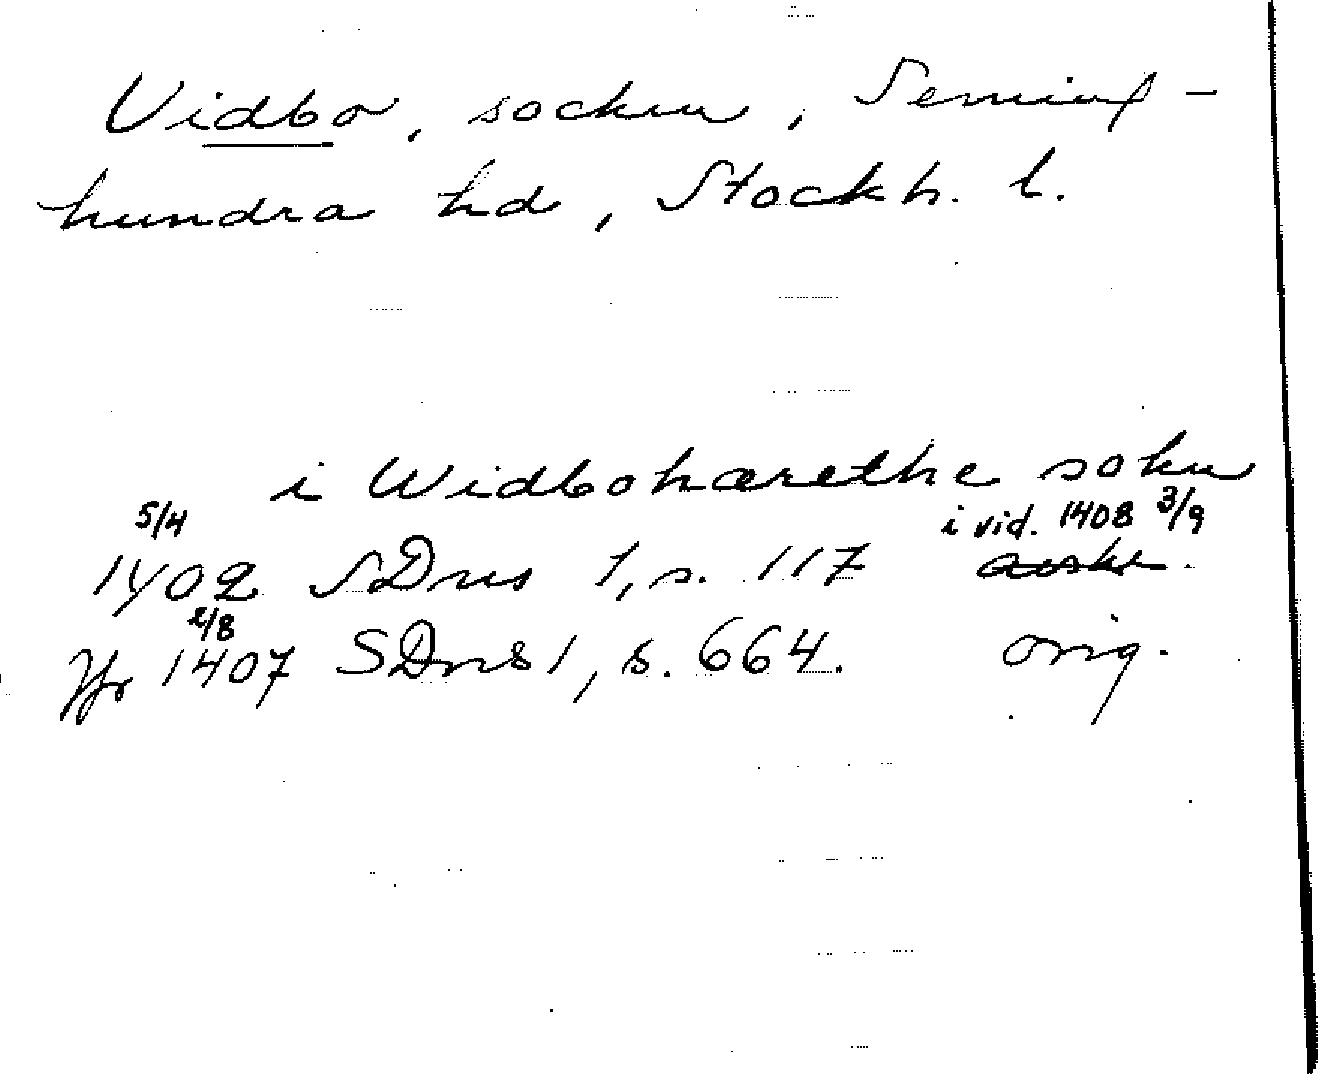 Vidbo, socken, Seming-
hundra hd, Stockh. l.
i Widbohærethe sokn
5/4 i vid. 1408 3/9
1402 SDns 1, s. 117
2/8
Jfr 1407 SDns 1, s. 664. orig.